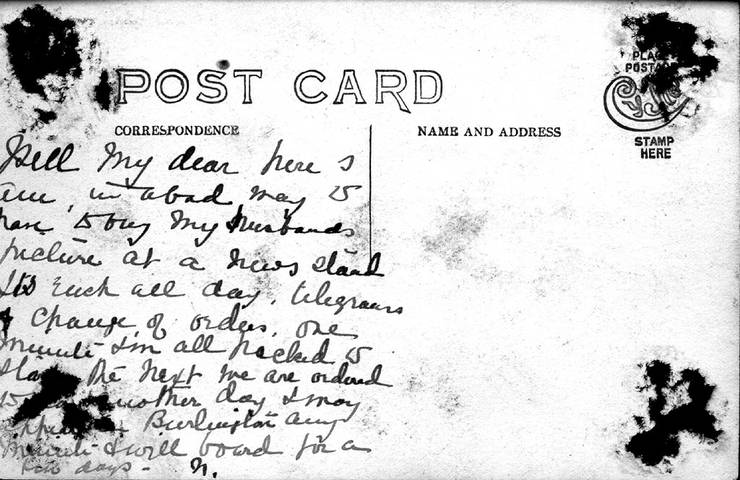 POST CARD
PLACE
POSTAGE
STAMP
HERE
CORRESPONDENCE
NAME AND ADDRESS
Well My dear here I
am, in a bad way to
have to buy My husbands
picture at a News stand
It's such all day, telegrams
& change of orders, one
minute I'm all packed to
start the Next we are ordered
to another day I may
Burlington any
minute I will board for a
few days - N.